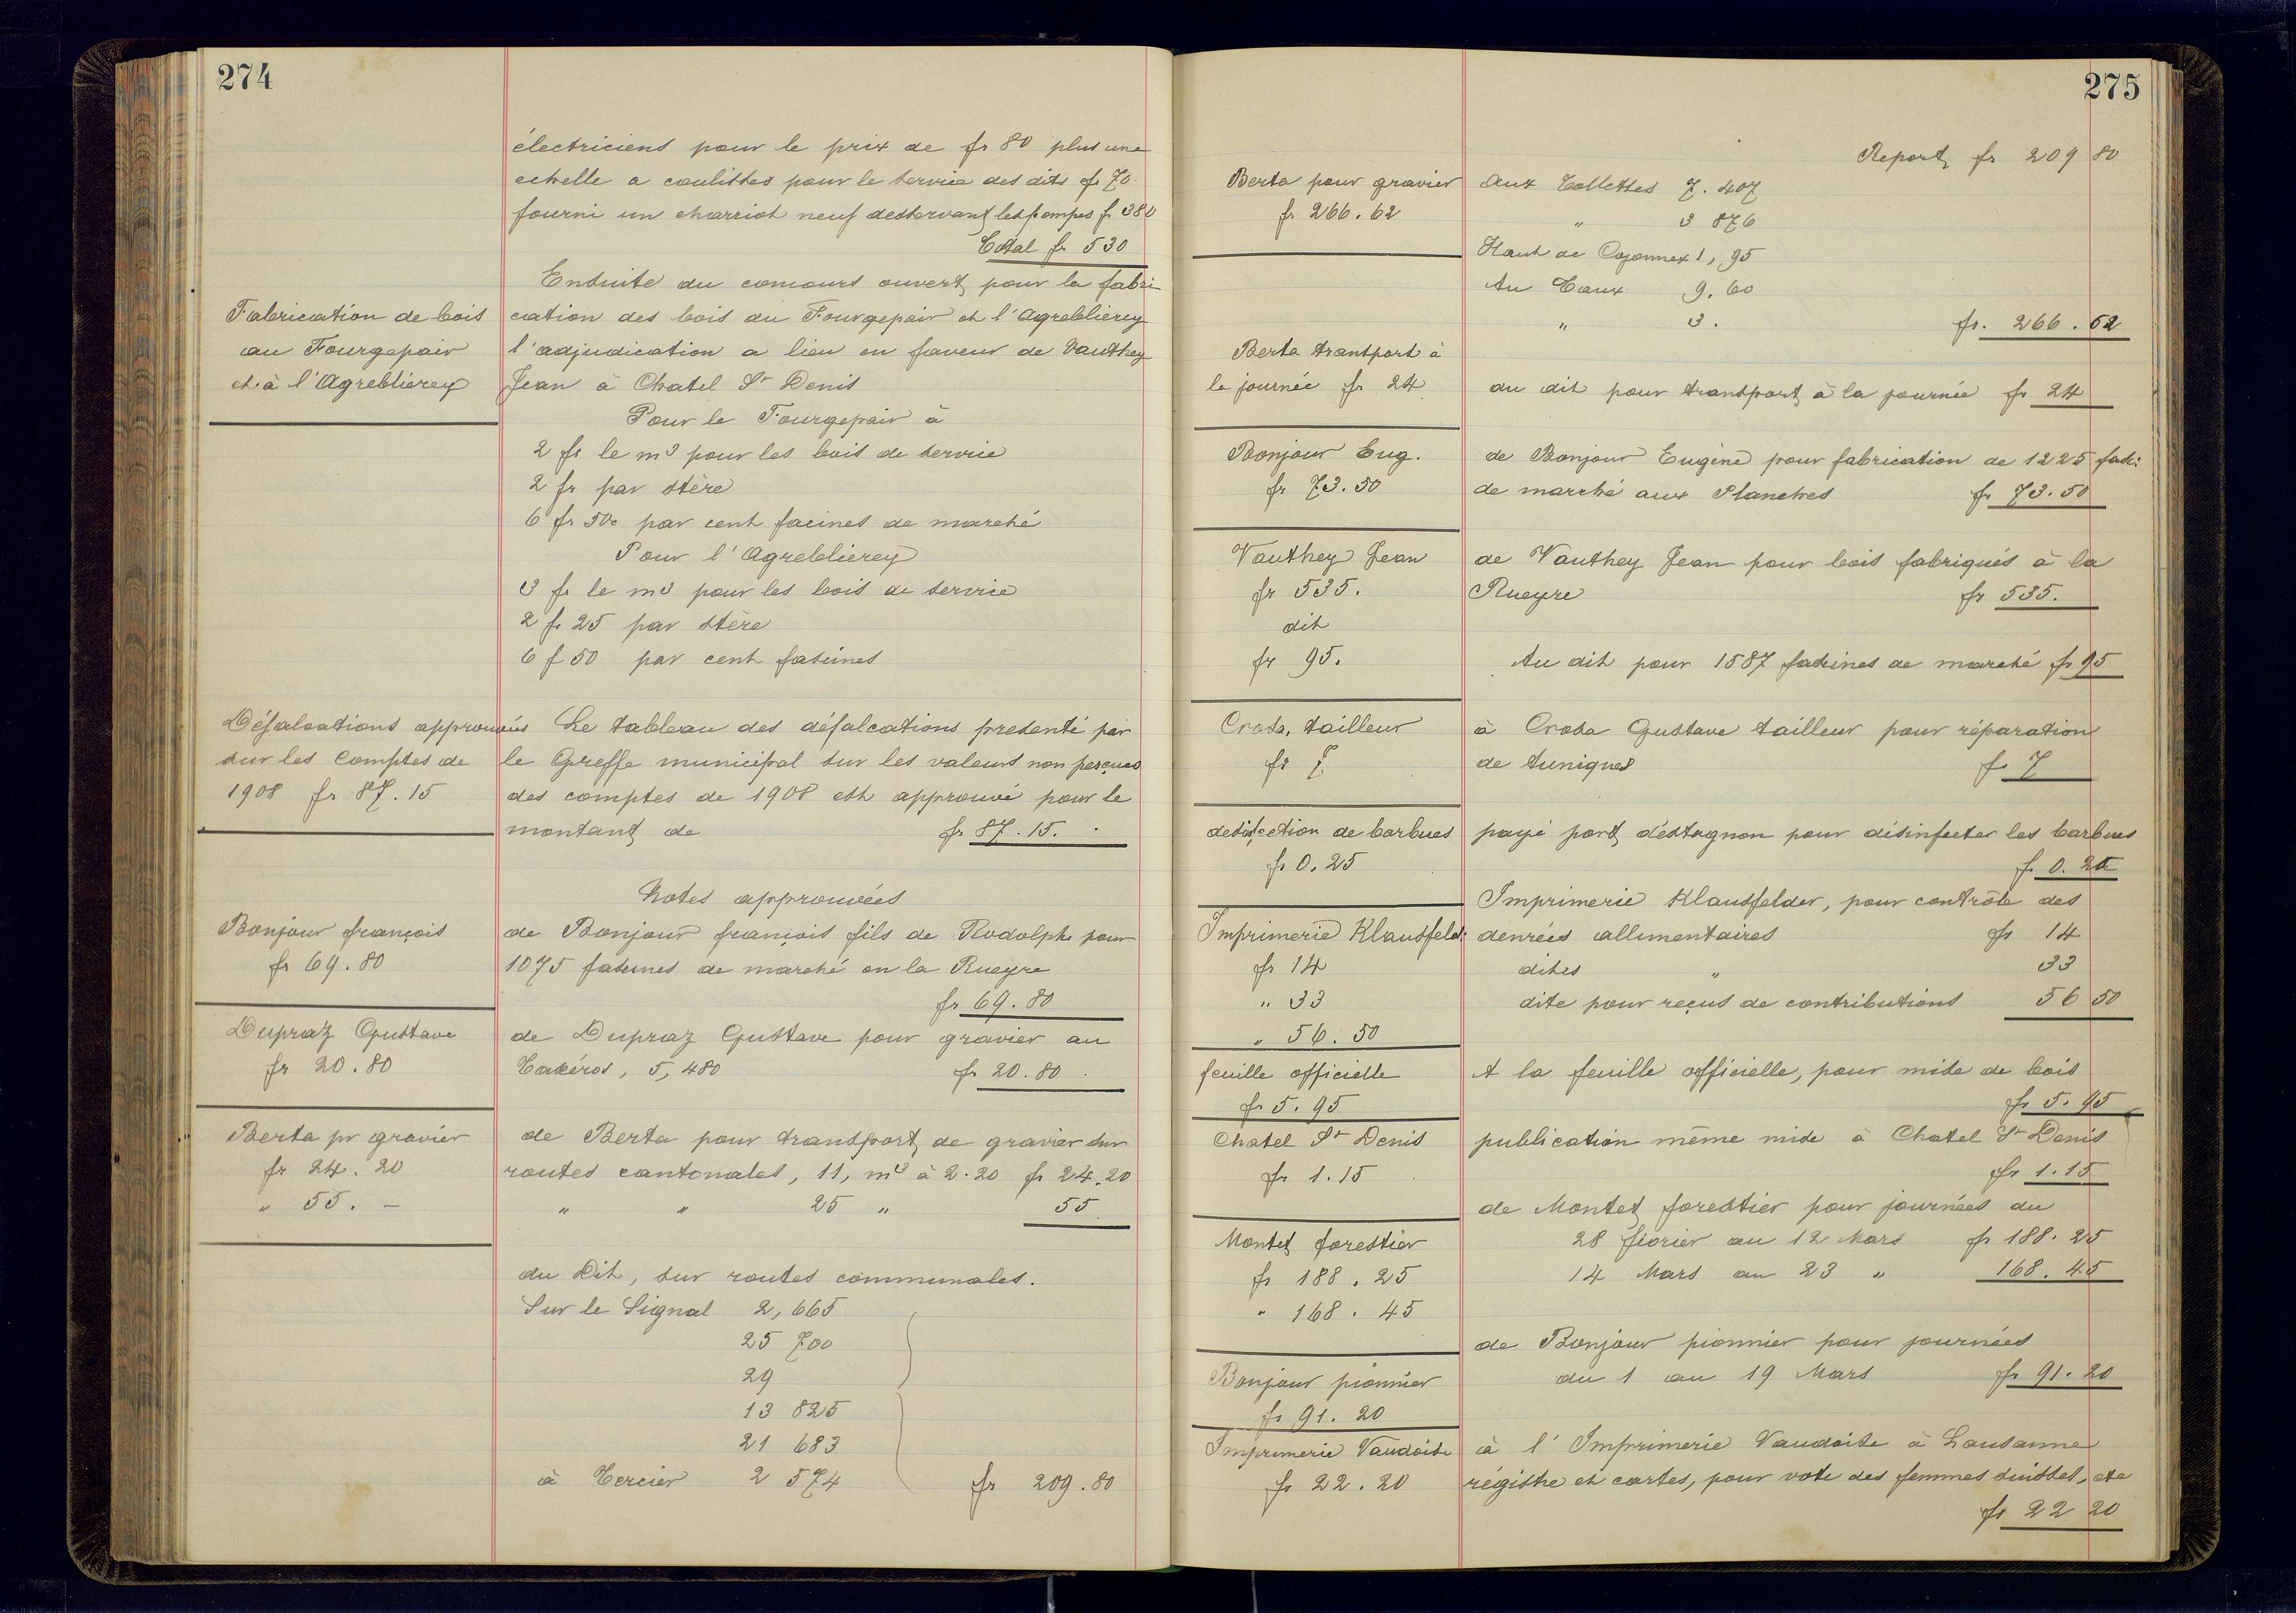 274
électriciens pour le prix de fr 80 plus une
echelle a coulisses pour le service des dits fr 70.
fourni un charriot neuf desservant les pompes fr 380
Total fr 530
Ensuite du concours ouvert pour la fabri
Fabrication de bois
au Fourgepair
et à l'Agreblierey
cation des bois du Fourgepair et l'Agreblierey
l'adjudication a lieu en faveur de Vauthey
Jean à Chatel St Denis
Pour le Fourgepair à
2 fr le m3 pour les bois de service
2 fr par stère
6 fr 50c par cent facines de marché
Pour l'Agreblierey
3 fr le m3 pour les bois de service
2 fr 25 par stère
6 f 50 par cent fascines
Défalcations approuvées
sur les Comptes de
1908 fr 87.15
Le tableau des défalcations presenté par
le Greffe municipal sur les valeurs non perçues
des comptes de 1908 est approuvé pour le
montant de fr 87.15.
Notes approuvées
Bonjour françois
fr 69.80
de Bonjour françois fils de Rodolphe pour
1075 fascines de marché en la Rueyre
fr 69.80
Dupraz Gustave
fr 20.80
de Dupraz Gustave pour gravier au
Cakéros, 5,480 fr 20.80
Berta pr gravier
fr 24.20
" 55. –
de Berta pour transport de gravier sur
routes cantonales, 11, m3 à 2.20 fr 24.20
" " 25 " 55
du Dit, sur routes communales.
Sur le Signal 2,665
25 700
29
13 825
21 683
à Tercier 2 574 fr 209.80
275
Report fr 209 80
Berta pour gravier
fr 266.62
Aux Collettes 7.407
" 3 876
Haut de Cojonnex 1,,95
Au Caux 9.60
" 3. fr. 266.62
Berta transport à
la journée fr 24
au dit pour transport à la journée fr 24
Bonjour Eug.
fr 73.50
de Bonjour Eugène pour fabrication de 1225 fasc:
de marché aux Planches fr 73.50
Vauthey Jean
fr 535.
dit
fr 95.
de Vauthey Jean pour bois fabriqués à la
Rueyre fr 535.
Au dit pour 1587 fascines de marché fr 95
Croda, tailleur
fr 7
à Croda Gustave tailleur pour réparation
de tuniques fr 7
desinfection de barbues
fr 0.25
payé port d'estagnon pour désinfecter les barbues
fr 0.25
Imprimerie Klausfeld:
fr 14
" 33
" 56.50
Imprimerie Klausfelder, pour contrôle des
denrées allimentaires fr 14
dites " 33
dite pour reçus de contributions 56 50
feuille officielle
fr 5.95
A la feuille officielle, pour mise de bois
fr 5.95
Chatel St Denis
fr 1.15
publication même mise à Chatel St Denis
fr 1.15
Montet forestier
fr 188.25
" 168.45
de Montet forestier pour journées du
28 février au 12 Mars fr 188.25
14 Mars au 23 " 168.45
Bonjour pionnier
fr 91.20
de Bonjour pionnier pour journées
du 1 au 19 Mars fr 91.20
Imprimerie Vaudoise
fr 22.20
à l'Imprimerie Vaudoise à Lausanne
régistre et cartes, pour vote des femmes suisses, etc
fr 22 20